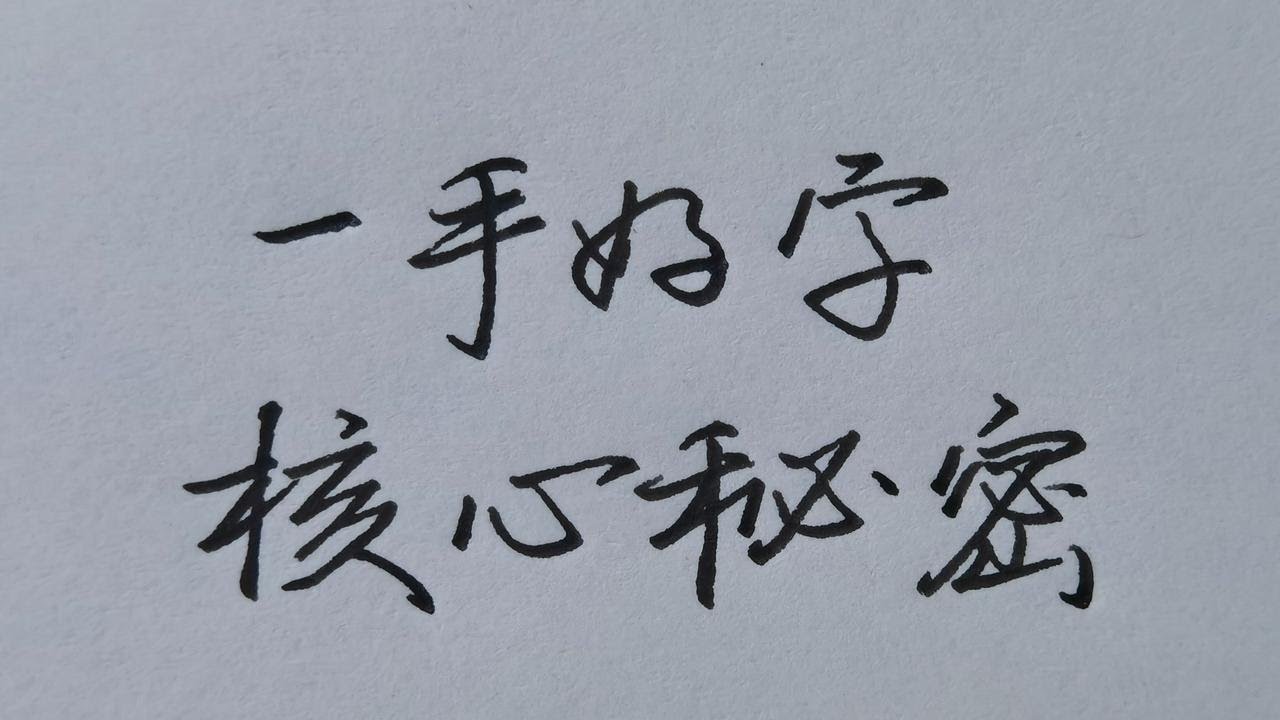 一手好字
核心秘密